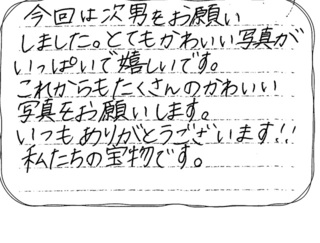 今回は次男をお願い
しました。とてもかわいい写真が
いっぱいで嬉しいです。
これからもたくさんのかわいい
写真をお願いします。
いつもありがとうございます!!
私たちの宝物です。